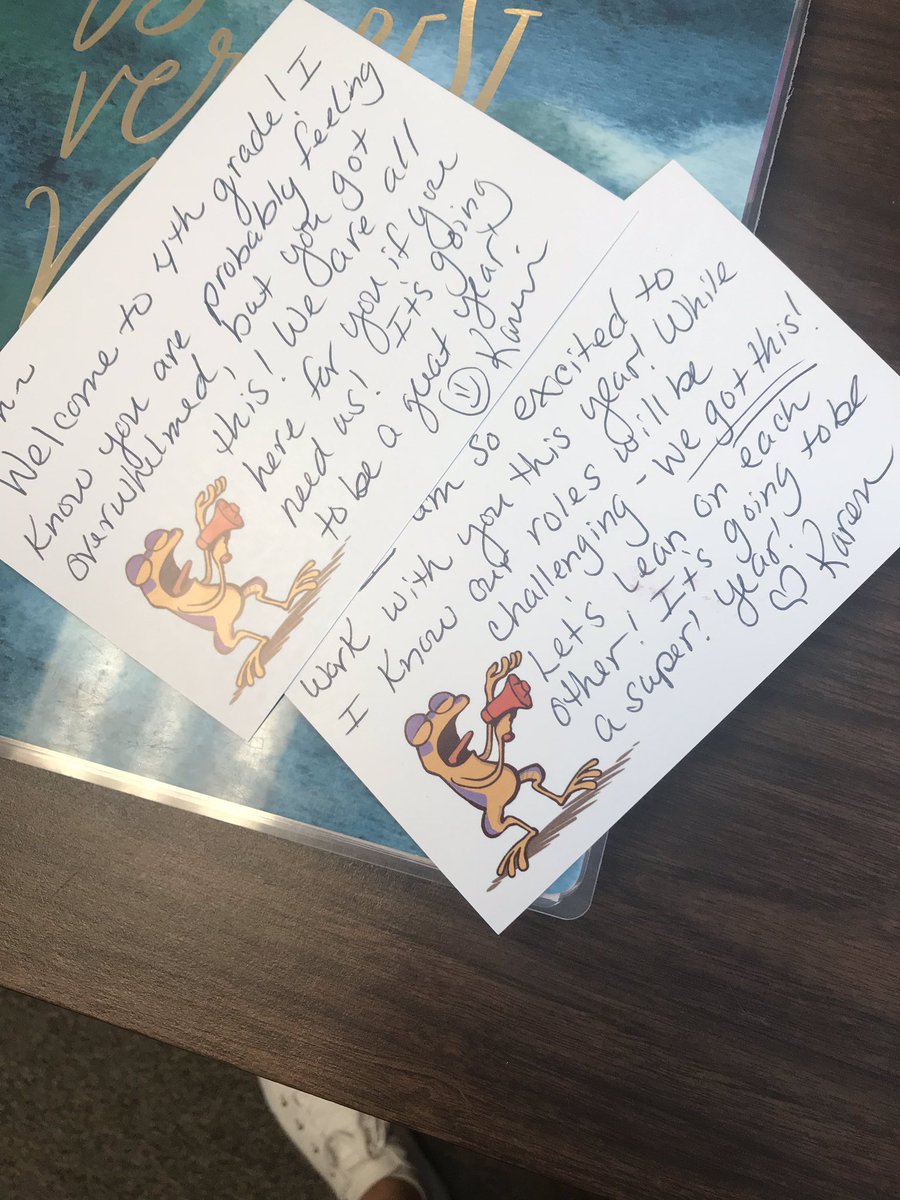 ver
Welcome to 4th grade! I
Know you are probably feeling
overwhelmed, but you got
this! We are all
here for you if you
need us! It's going
to be a great year!
Karen
am so excited to
work with you this year! While
I Know our roles will be
challenging - We got this!
Let's Lean on each
other! It's going to be
a super! year!
♡ Karen